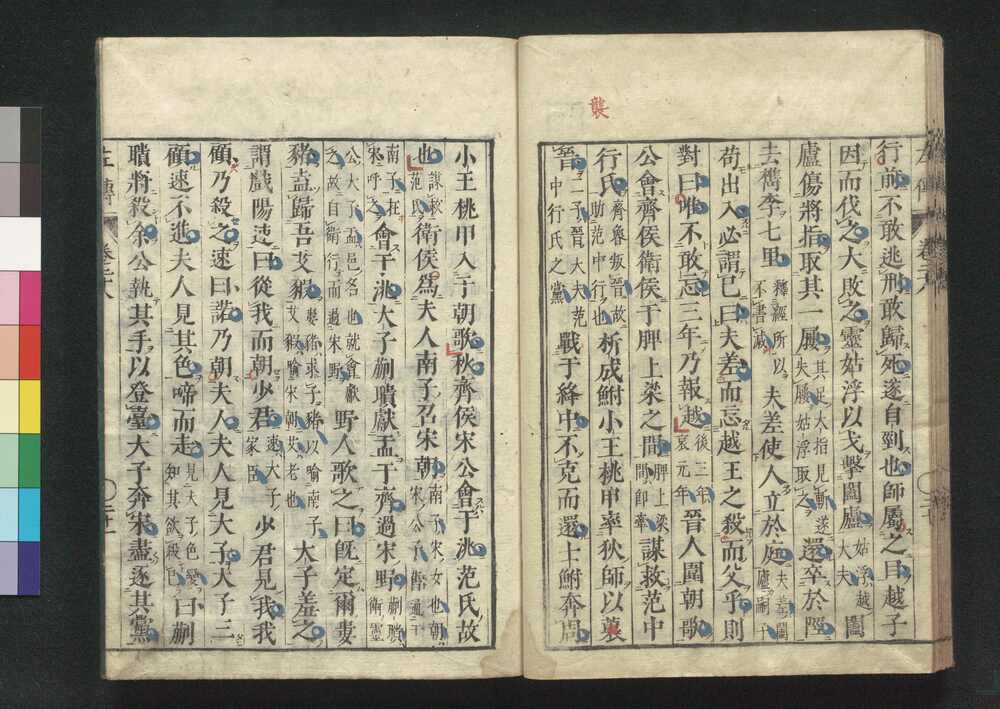 襲
行前不敢逃刑敢歸死遂自剄也師屬之目越子
因而伐之大敗之靈姑浮以戈擊闔廬姑浮越大夫闔
廬傷將指取其一屨其足大指見斬遂失屨姑浮取之還卒於陘
去檇李七里釋經所以不書滅夫差使人立於庭夫差闔廬嗣子
苟出入必謂己曰夫差而忘越王之殺而父乎則
對曰唯不敢忘三年乃報越後三年哀元年晉人圍朝歌
公會齊侯衛侯于脾上梁之間脾上梁間即牽謀救范中
行氏齊魯叛晉故助范中行也析成鮒小王桃甲率狄師以
晉二子晉大夫范中行氏之黨戰于絳中不克而還士鮒奔周
小王桃甲入于朝歌秋齊侯宋公會于洮范氏故
也謀救范氏衛侯爲夫人南子召宋朝南子宋女也朝宋公子舊通于
南子在宋呼之會于洮大子蒯聵獻盂于齊過宋野蒯聵衛靈
公大子盂邑名也就會獻之故自衛行而過宋野野人歌之曰既定爾婁
豬盍歸吾艾豭婁豬求子豬以喻南子艾豭喻宋朝艾老也大子羞之
謂戲陽速曰從我而朝少君速大子家臣少君見我我
顧乃殺之速曰諾乃朝夫人夫人見大子大子三
顧速不進夫人見其色啼而走見大子色變知其欲殺己曰蒯
聵將殺余公執其手以登臺大子奔宋盡逐其黨
左傳